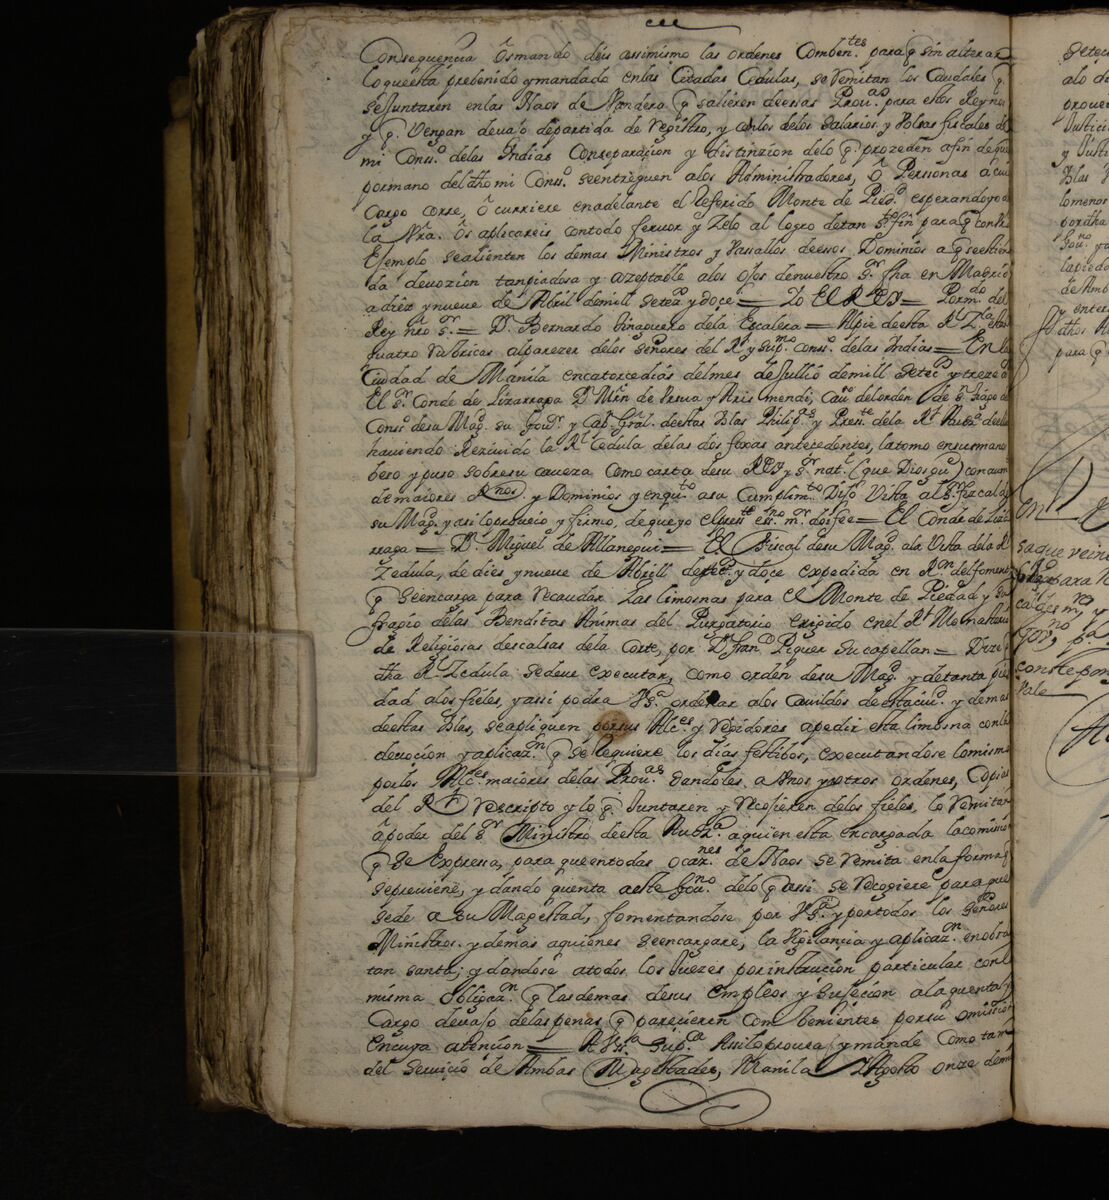 Consequencia Ôs mando déis assimismo las ordenes Combenᵗᵉˢ para q̃ sin alterar
lo que esta prebenido y mandado en las Citadas Cedulas, se Remitan los Caudales q̃
se Juntaren en las Naos de Vandera q̃ salieren de essas Prouᵃˢ para estos Reynos
y q̃ Vengan devajo de partida de Registro, y con los delos salarios y Volsas fiscales de
mi Consᵒ delas Indias Conseparaçion y distinzion delo q̃ prozeden a fin de que
por mano del dho mi Consᵒ se entreguen alos Administradores, Ô Personas a cuio
Cargo corre, Ô curriere en adelante el referido Monte de Piedᵈ esperando yo de
la Vrᵃ. Ôs aplicareis con todo feruor y Zelo al logro de tan Sᵗᵒ fin para q̃ con Vro
Ejemplo se alienten los demas Ministros y Vassallos de essos Dominios a q̃ se estien
da devozion tan piadosa y azeptable alos ojos de nuestro Sʳ fha en Madrid
a diez y nueve de Abril de mill setezᵒˢ y doce = Yo El REy = Por mᵈᵒ del
Rey nr̃o sʳ. = Dⁿ Bernardo Tinaguero dela Escalera = Al pie de esta Rˡ Zᵈˡᵃ estan
quatro rubricas al parezer delos señores del Rˡ y Supᵐᵒ Consᵒ delas Indias = En la
Ciudad de Manila en catorce dias del mes de Jullio de mill setecᵒˢ y treze aˢ
El Sʳ Conde de Lizarraga Dⁿ Mrn̄ de Vrsua y Arismendi, Cauᵒ del orden de Sⁿ tiago de
Consᵒ de su Magᵈ. su Gouʳ. y Capⁿ Grãl. de estas Yslas Philipᵃˢ y Presᵗᵉ dela Rˡ Audzᵃ de ellas
hauiendo Rezeuido la Rˡ Cedula delas dos foxas antecedentes, la tomo en sus manos
bezo y puso sobre su caueza Como carta de su REy y Sʳ natˡ (que Dios gᵉ) con aumtᵒ
de maiores Rnoˢ. y Dominios y en quᵗᵒ a su Cumplimᵗᵒ Dijo Vista al Sʳ fizcal de
su Magᵈ. y assi lo proueio y firmo, de que yo el pressᵗᵉ essⁿᵒ mʳ doi fee = El Conde de Liza
rraga = Dⁿ Miguel de Allanegui = El Fiscal de su Magᵈ. ala Vista dela Rˡ
Zedula, de dies y nueve de Abrill de setezᵒˢ y doce expedida en Rⁿ del fomento
q̃ se encarga para recaudar las limosnas para el Monte de Piedad y Su
fragio delas Benditas Animas del Purgatorio erigido en el Rˡ Monasterio
de Religiosas descalsas dela Corte, por Dⁿ Franᶜᵒ Piquer su capellan = Dize q̃
dha Rˡ Zedula se deue executar, como orden de su Magᵈ y de tanta pie
dad alos fieles, y assi podra VSᵃ ordenar alos Cauildos de esta ciuᵈ. y demas
de estas Yslas, se apliquen por sus Alcᵉˢ y Regidores a pedir esta limosna con la
devocion y aplicazⁿ q̃ se requiere los dias festibos, executandose lo mismo
por los Alcᵉˢ maiores delas Prouᵃˢ dandoles a Vnos y otros ordenes, Copias
del Rˡ Rescripto y lo q̃ Juntaren y recogieren delos fieles, lo remitan
a poder del Sʳ Ministro de esta Audzᵃ a quien esta encargada la comission
q̃ se Expressa, para que en todas ocazⁿᵉˢ de Naos se remita en la forma q̃
se previene, y dando quenta a este Gouⁿᵒ delo q̃ assi se recogiere para que
se de a su Magestad, fomentandose por VSᵃ y por todos los Señores
Ministros. y demas a quienes se encargare, la Vigilançia y aplicazⁿ en obra
tan santa; y dandose atodos los Juezes por instrucion particular con la
misma Obligazⁿ q̃ las demas de sus Empleos y Sujecion ala quenta y
Cargo devajo delas penas q̃ pareçieren Com benientes por su omission
en cuya atencion = A VSᵃ Supᶜᵃ Assi lo prouea y mande Como tan
del Servicio de Ambas Magestades, Manila y Agosto onze de mil